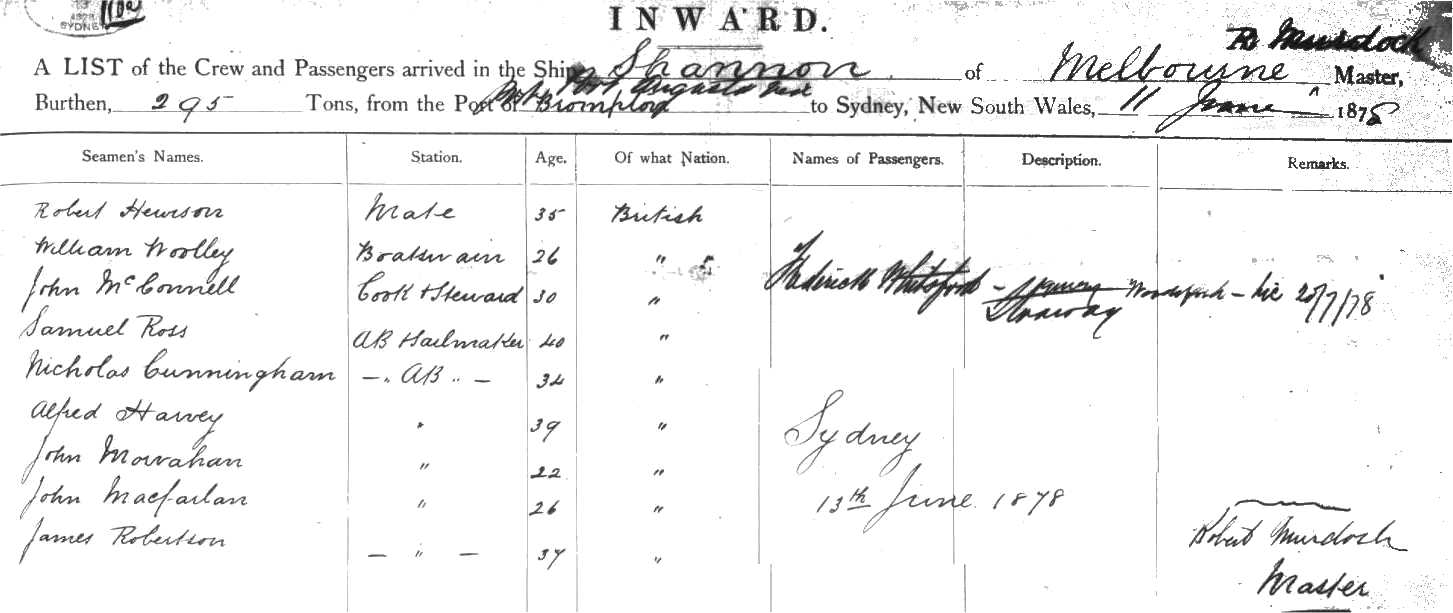 1878
SYDNEY
INWARD.
R Murdoch
A LIST of the Crew and Passengers arrived in the Ship Shannon of Melbourne Master,
Port Augusta
Burthen, 295 Tons, from the Port of to Sydney, New South Wales, 11 June 1878
Seamen's Names. Station. Age. Of what Nation. Names of Passengers. Description. Remarks.
Robert Hewison Mate 35 British
William Woolley Boatswain 26 "
John McConnell Cook & Steward 30 " Frederick Whitsford - 20/7/78
Stowaway
Samuel Ross AB Sailmaker 40 "
Nicholas Cunningham – " AB " – 34 "
Alfred Harvey " 39 "
Sydney
John Mowahan " 22 "
John Macfarlan " 26 "
13th June 1878
James Robertson – " – 37 "
Robert Murdoch
Master